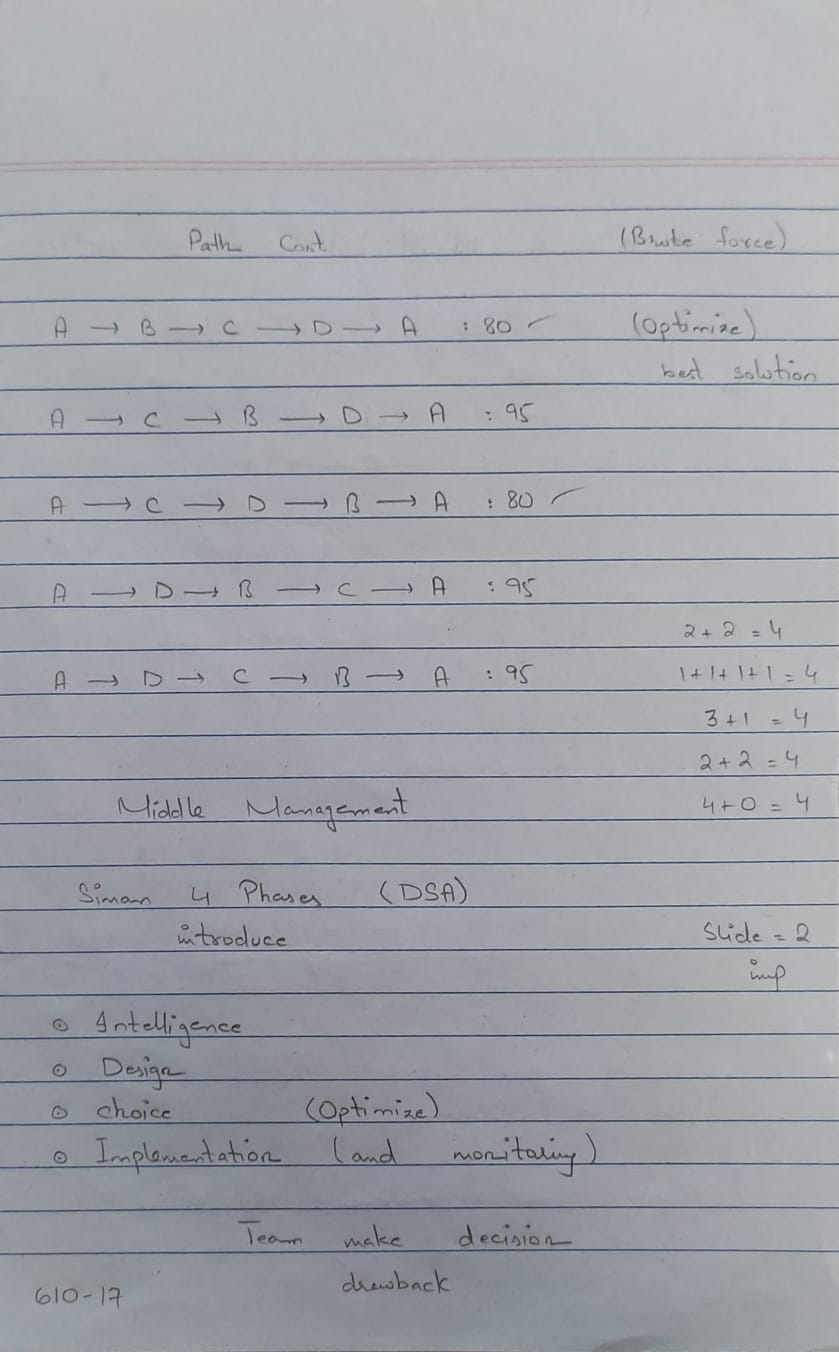 Path Cost (Brute force)
A → B → C → D → A : 80 ✓ (Optimize)
best solution
A → C → B → D → A : 95
A → C → D → B → A : 80 ✓
A → D → B → C → A : 95
2 + 2 = 4
A → D → C → B → A : 95 1+1+1+1 = 4
3 + 1 = 4
2 + 2 = 4
Middle Management 4 + 0 = 4
Siman 4 Phases (DSA)
introduce Slide = 2
imp
⊙ Intelligence
⊙ Design
⊙ choice (Optimize)
⊙ Implementation (and monitoring)
Team make decision
drawback
610-17